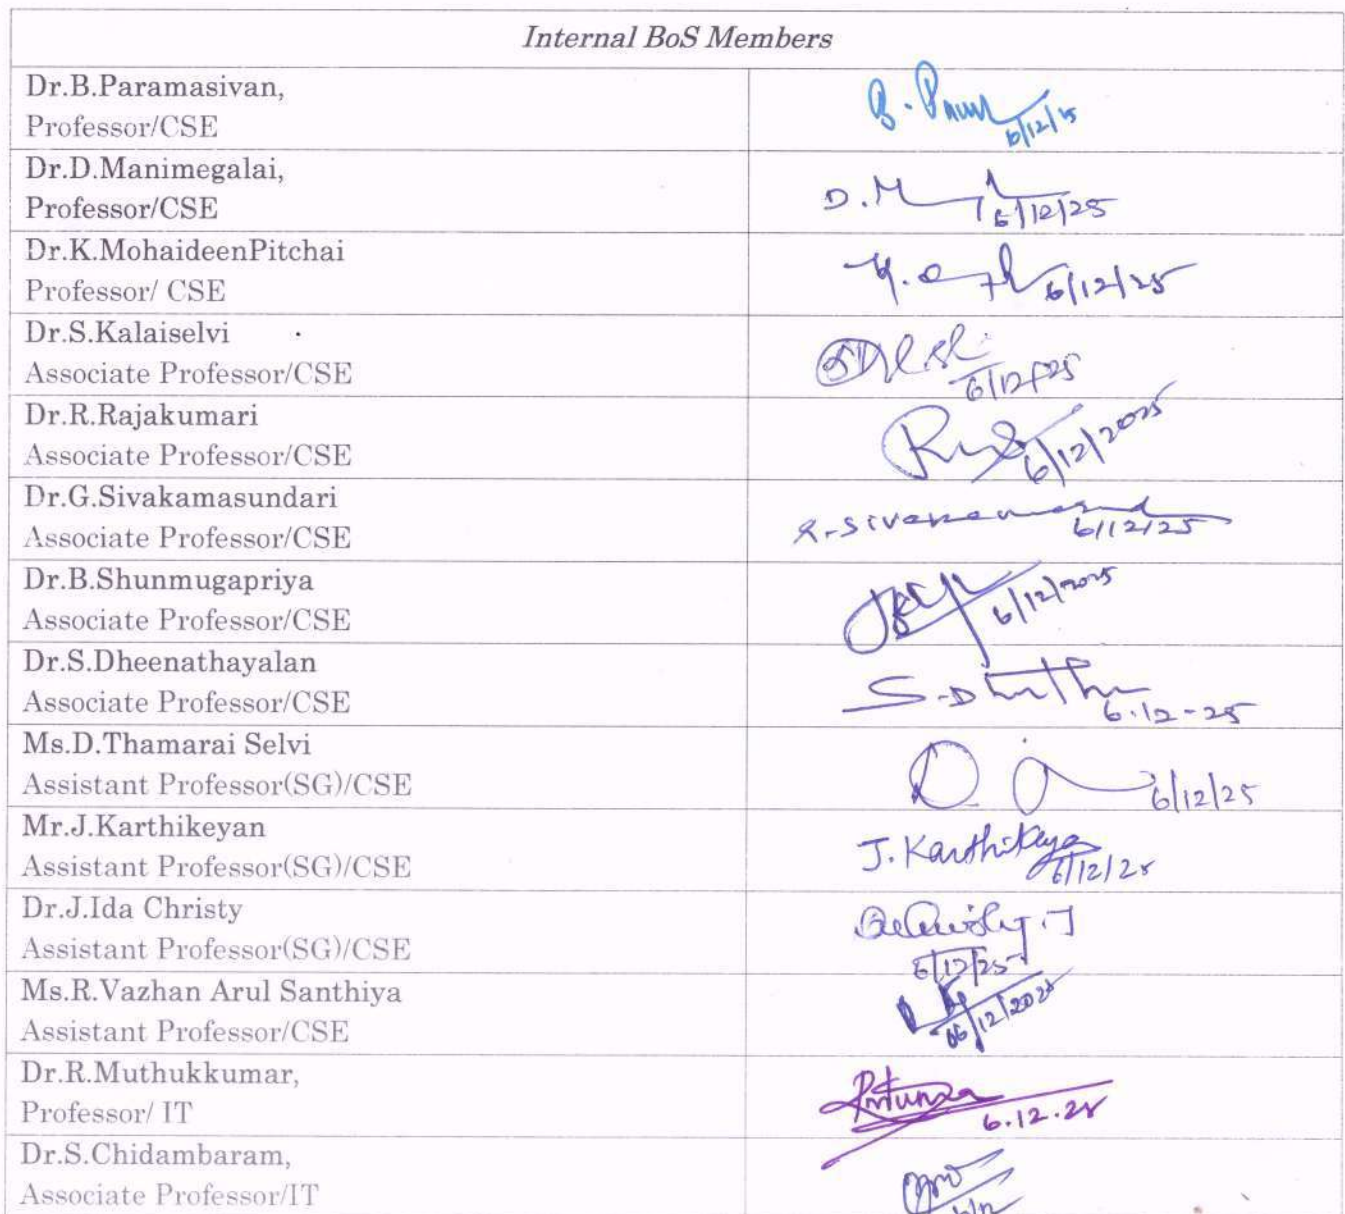 Internal BoS Members
Dr.B.Paramasivan,
Professor/CSE
B.
6/12/25
Dr.D.Manimegalai,
Professor/CSE
D.M
6/12/25
Dr.K.MohaideenPitchai
Professor/ CSE
6/12/25
Dr.S.Kalaiselvi
Associate Professor/CSE
6/12/25
Dr.R.Rajakumari
Associate Professor/CSE
6/12/2025
Dr.G.Sivakamasundari
Associate Professor/CSE
6/12/25
Dr.B.Shunmugapriya
Associate Professor/CSE
6/12/2025
Dr.S.Dheenathayalan
Associate Professor/CSE
S.D
6.12-25
Ms.D.Thamarai Selvi
Assistant Professor(SG)/CSE
D.
6/12/25
Mr.J.Karthikeyan
Assistant Professor(SG)/CSE
J.Karthikeya
6/12/25
Dr.J.Ida Christy
Assistant Professor(SG)/CSE
6/12/25
Ms.R.Vazhan Arul Santhiya
Assistant Professor/CSE
06/12/2025
Dr.R.Muthukkumar,
Professor/ IT
6.12.25
Dr.S.Chidambaram,
Associate Professor/IT